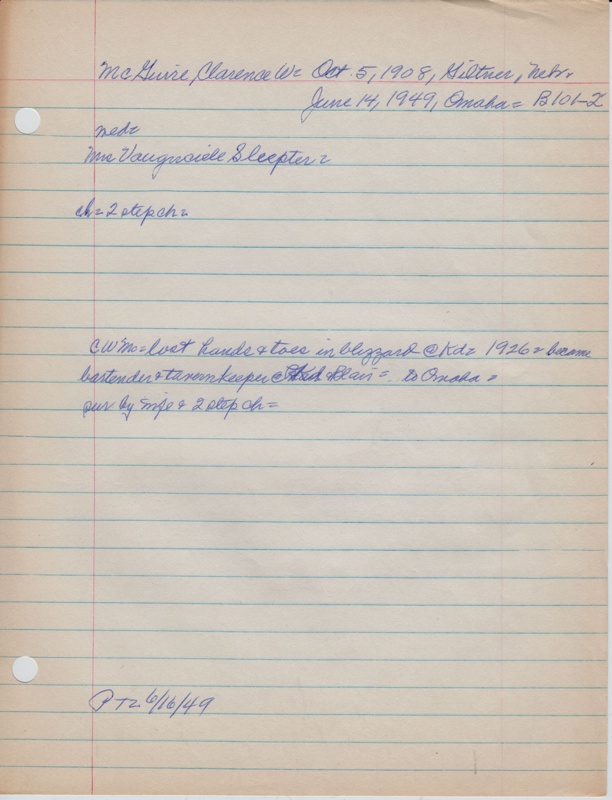 McGuire, Clarence W= Oct. 5, 1908, Giltner, Nebr.
June 14, 1949, Omaha= B101-Z
med=
Mrs Sleepter=
ch= 2 step ch=
CW Mc= lost hands & toes in blizzard @ Kd= 1926= became
bartender & tavernkeeper @ Blair=. to Omaha=
sur by wife & 2 step ch=
PT= 6/16/49